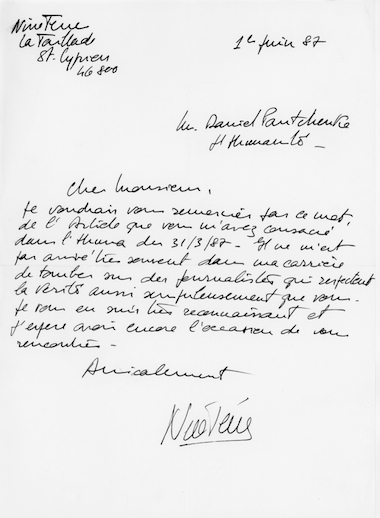 Nino Ferrer
La Taillade
St. Cyprien
46800
1er Juin 87
M. Daniel Pantchenko
L'Humanité -
Cher Monsieur,
Je voudrais vous remercier par ce mot,
de l'Article que vous m'avez consacré
dans l'Huma du 31/3/87 - Il ne m'est
pas arrivé très souvent dans ma carrière
de tomber sur des journalistes qui respectent
la vérité aussi scrupuleusement que vous -
Je vous en suis très reconnaissant et
j'espère avoir encore l'occasion de vous
rencontrer -
Amicalement
Nino Ferrer